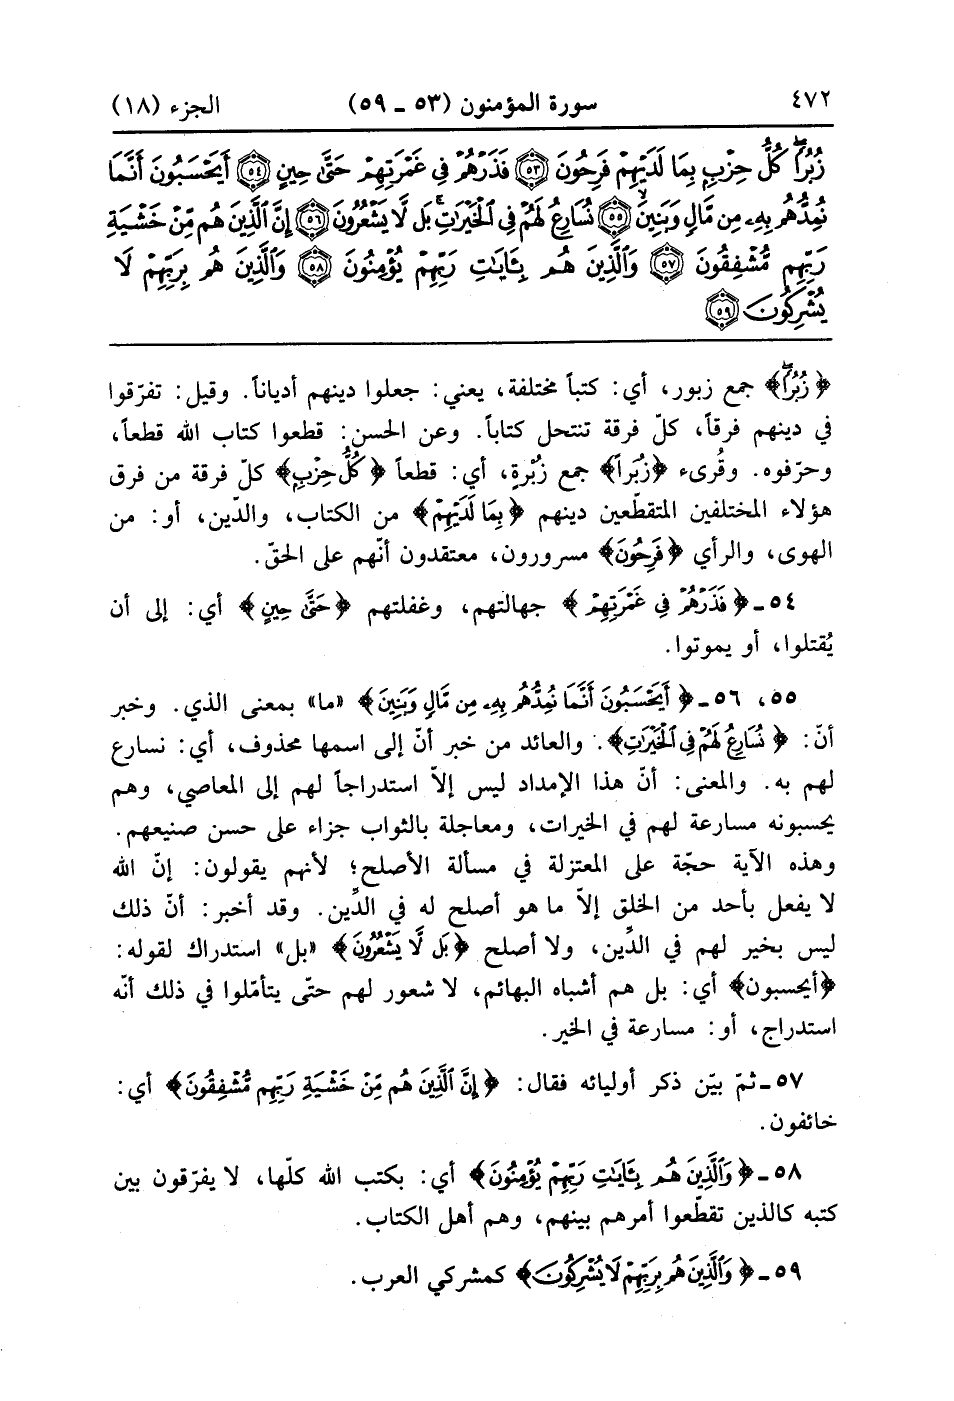 ٤٧٢ سورة المؤمنون (٥٣ ـ ٥٩) الجزء (١٨)
زُبُرًا ۖ كُلُّ حِزْبٍ بِمَا لَدَيْهِمْ فَرِحُونَ ٥٣ فَذَرْهُمْ فِي غَمْرَتِهِمْ حَتَّىٰ حِينٍ ٥٤ أَيَحْسَبُونَ أَنَّمَا
نُمِدُّهُم بِهِۦ مِن مَّالٍ وَبَنِينَ ۙ ٥٥ نُسَارِعُ لَهُمْ فِي ٱلْخَيْرَٰتِ ۚ بَل لَّا يَشْعُرُونَ ٥٦ إِنَّ ٱلَّذِينَ هُم مِّنْ خَشْيَةِ
رَبِّهِم مُّشْفِقُونَ ٥٧ وَٱلَّذِينَ هُم بِـَٔايَٰتِ رَبِّهِمْ يُؤْمِنُونَ ٥٨ وَٱلَّذِينَ هُم بِرَبِّهِمْ لَا
يُشْرِكُونَ ٥٩
﴿زُبُرًا ۖ﴾ جمع زبور، أي: كتباً مختلفة، يعني: جعلوا دينهم أدياناً. وقيل: تفرّقوا
في دينهم فرقاً، كلّ فرقة تنتحل كتاباً. وعن الحسن: قطعوا كتاب الله قطعاً،
وحرّفوه. وقُرىء ﴿زُبَراً﴾ جمع زُبْرةٍ، أي: قطعاً ﴿كُلُّ حِزْبٍ﴾ كلّ فرقة من فرق
هؤلاء المختلفين المتقطّعين دينهم ﴿بِمَا لَدَيْهِمْ﴾ من الكتاب، والدّين، أو: من
الهوى، والرأي ﴿فَرِحُونَ﴾ مسرورون، معتقدون أنّهم على الحقّ.
٥٤ ـ ﴿فَذَرْهُمْ فِي غَمْرَتِهِمْ﴾ جهالتهم، وغفلتهم ﴿حَتَّىٰ حِينٍ﴾ أي: إلى أن
يُقتلوا، أو يموتوا.
٥٥، ٥٦ ـ ﴿أَيَحْسَبُونَ أَنَّمَا نُمِدُّهُم بِهِۦ مِن مَّالٍ وَبَنِينَ﴾ «ما» بمعنى الذي. وخبر
أنّ: ﴿نُسَارِعُ لَهُمْ فِي ٱلْخَيْرَٰتِ﴾. والعائد من خبر أنّ إلى اسمها محذوف، أي: نسارع
لهم به. والمعنى: أنّ هذا الإمداد ليس إلاّ استدراجاً لهم إلى المعاصي، وهم
يحسبونه مسارعة لهم في الخيرات، ومعاجلة بالثواب جزاء على حسن صنيعهم.
وهذه الآية حجّة على المعتزلة في مسألة الأصلح؛ لأنهم يقولون: إنّ الله
لا يفعل بأحد من الخلق إلاّ ما هو أصلح له في الدِّين. وقد أخبر: أنّ ذلك
ليس بخير لهم في الدِّين، ولا أصلح ﴿بَل لَّا يَشْعُرُونَ﴾ «بل» استدراك لقوله:
﴿أيحسبون﴾ أي: بل هم أشباه البهائم، لا شعور لهم حتّى يتأمّلوا في ذلك أنّه
استدراج، أو: مسارعة في الخير.
٥٧ ـ ثمّ بيّن ذكر أوليائه فقال: ﴿إِنَّ ٱلَّذِينَ هُم مِّنْ خَشْيَةِ رَبِّهِم مُّشْفِقُونَ﴾ أي:
خائفون.
٥٨ ـ ﴿وَٱلَّذِينَ هُم بِـَٔايَٰتِ رَبِّهِمْ يُؤْمِنُونَ﴾ أي: بكتب الله كلّها، لا يفرّقون بين
كتبه كالذين تقطّعوا أمرهم بينهم، وهم أهل الكتاب.
٥٩ ـ ﴿وَٱلَّذِينَ هُم بِرَبِّهِمْ لَا يُشْرِكُونَ﴾ كمشركي العرب.